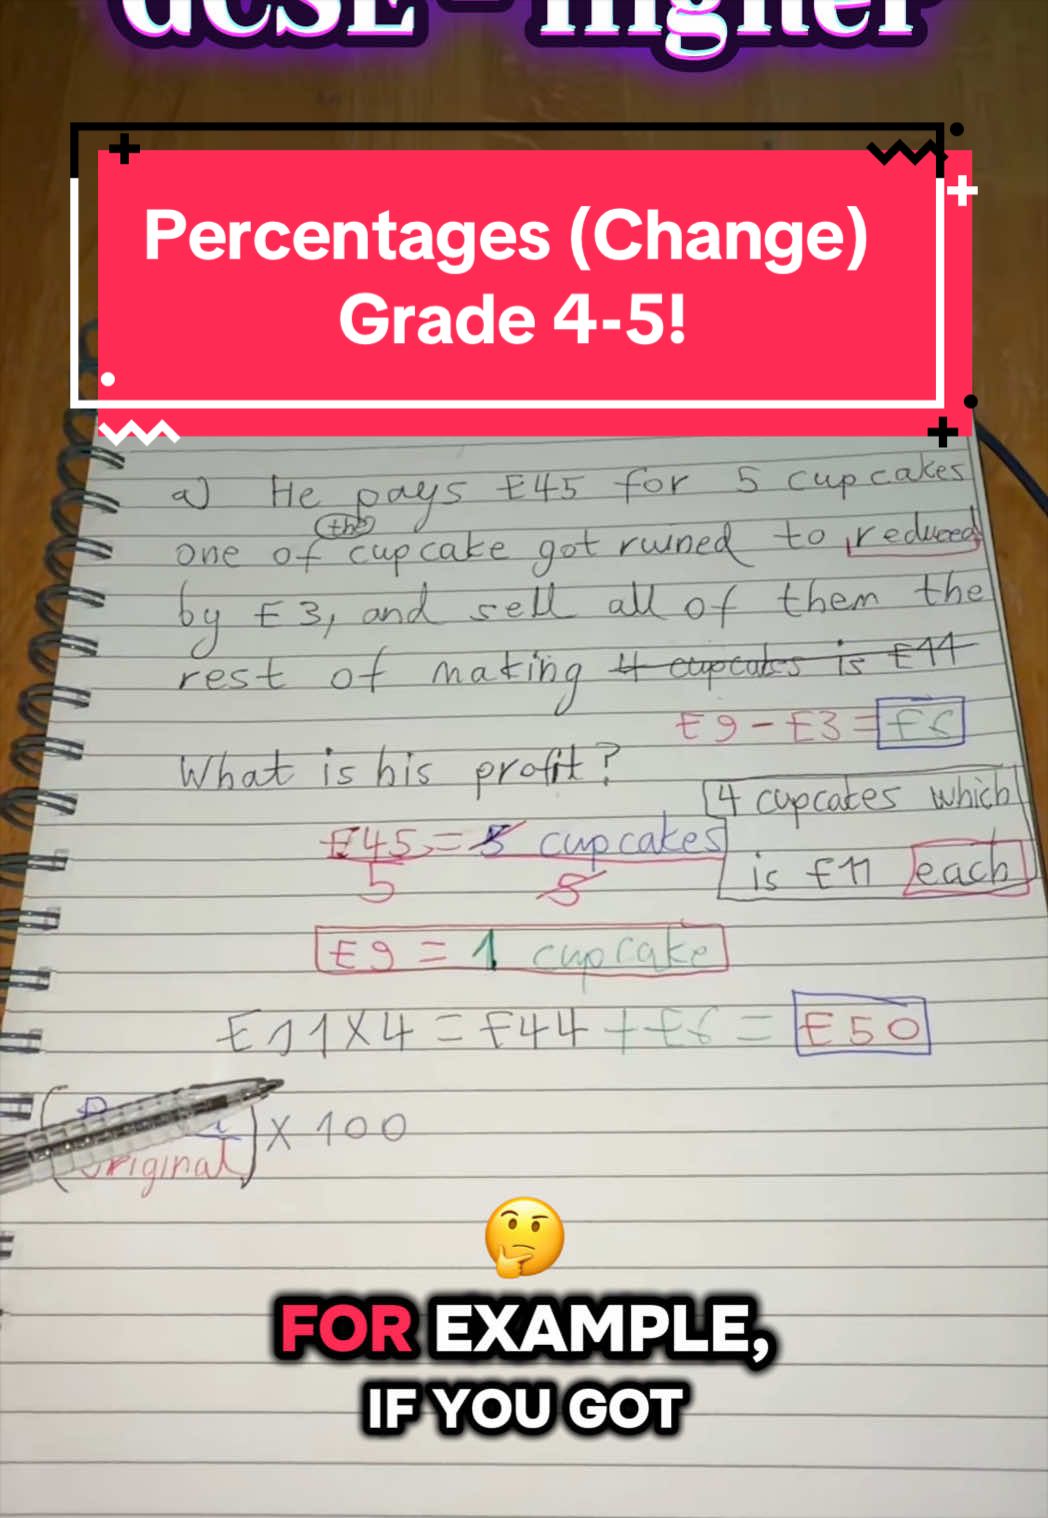 GCSE - Higher
Percentages (Change)
Grade 4-5!
a) He pays £45 for 5 cupcakes
the
one of cupcake got ruined to reduced
by £3, and sell all of them the
rest of making 4 cupcakes is £11
£9 - £3 = £6
What is his profit?
4 cupcakes which
£45 = 5 cupcakes
is £11 each
5 5
£9 = 1 cupcake
£11 X 4 = £44 + £6 = £50
X 100
original
FOR EXAMPLE,
IF YOU GOT